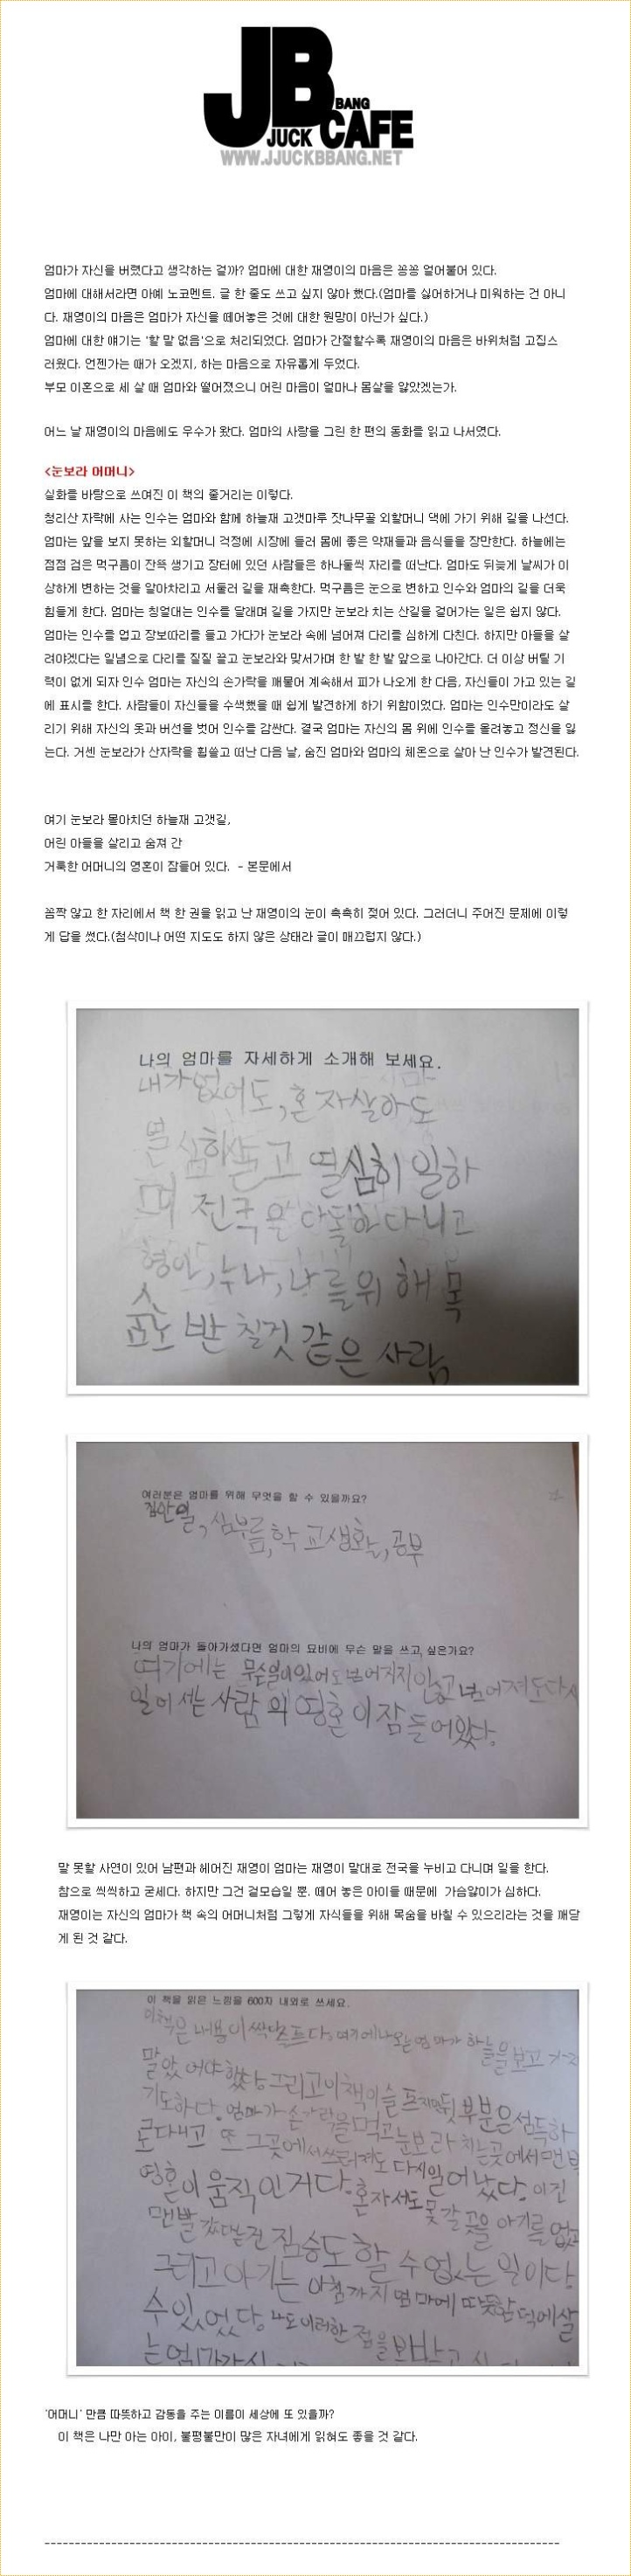 JB
BANG
JUCK CAFE
WWW.JJUCKBBANG.NET
엄마가 자신을 버렸다고 생각하는 걸까? 엄마에 대한 재영이의 마음은 꽁꽁 얼어붙어 있다.
엄마에 대해서라면 아예 노코멘트. 글 한 줄도 쓰고 싶지 않아 했다.(엄마를 싫어하거나 미워하는 건 아니
다. 재영이의 마음은 엄마가 자신을 떼어놓은 것에 대한 원망이 아닌가 싶다.)
엄마에 대한 얘기는 '할 말 없음'으로 처리되었다. 엄마가 간절할수록 재영이의 마음은 바위처럼 고집스
러웠다. 언젠가는 때가 오겠지, 하는 마음으로 자유롭게 두었다.
부모 이혼으로 세 살 때 엄마와 떨어졌으니 어린 마음이 얼마나 몸살을 앓았겠는가.
어느 날 재영이의 마음에도 우수가 왔다. 엄마의 사랑을 그린 한 편의 동화를 읽고 나서였다.
<눈보라 어머니>
실화를 바탕으로 쓰여진 이 책의 줄거리는 이렇다.
청리산 자락에 사는 인수는 엄마와 함께 하늘재 고갯마루 잣나무골 외할머니 댁에 가기 위해 길을 나선다.
엄마는 앞을 보지 못하는 외할머니 걱정에 시장에 들러 몸에 좋은 약재들과 음식들을 장만한다. 하늘에는
점점 검은 먹구름이 잔뜩 생기고 장터에 있던 사람들은 하나둘씩 자리를 떠난다. 엄마도 뒤늦게 날씨가 이
상하게 변하는 것을 알아차리고 서둘러 길을 재촉한다. 먹구름은 눈으로 변하고 인수와 엄마의 길을 더욱
힘들게 한다. 엄마는 칭얼대는 인수를 달래며 길을 가지만 눈보라 치는 산길을 걸어가는 일은 쉽지 않다.
엄마는 인수를 업고 장보따리를 들고 가다가 눈보라 속에 넘어져 다리를 심하게 다친다. 하지만 아들을 살
려야겠다는 일념으로 다리를 질질 끌고 눈보라와 맞서가며 한 발 한 발 앞으로 나아간다. 더 이상 버틸 기
력이 없게 되자 인수 엄마는 자신의 손가락을 깨물어 계속해서 피가 나오게 한 다음, 자신들이 가고 있는 길
에 표시를 한다. 사람들이 자신들을 수색했을 때 쉽게 발견하게 하기 위함이었다. 엄마는 인수만이라도 살
리기 위해 자신의 옷과 버선을 벗어 인수를 감싼다. 결국 엄마는 자신의 몸 위에 인수를 올려놓고 정신을 잃
는다. 거센 눈보라가 산자락을 휩쓸고 떠난 다음 날, 숨진 엄마와 엄마의 체온으로 살아 난 인수가 발견된다.
여기 눈보라 몰아치던 하늘재 고갯길,
어린 아들을 살리고 숨져 간
거룩한 어머니의 영혼이 잠들어 있다. - 본문에서
꼼짝 않고 한 자리에서 책 한 권을 읽고 난 재영이의 눈이 촉촉히 젖어 있다. 그러더니 주어진 문제에 이렇
게 답을 썼다.(첨삭이나 어떤 지도도 하지 않은 상태라 글이 매끄럽지 않다.)
나의 엄마를 자세하게 소개해 보세요.
내가없어도, 혼자살아도
열심히돌고 열심히 일하
며 전국을 다돌아다니고
형아, 누나, 나를위해 목
숨은 반칠것 같은 사람
여러분은 엄마를 위해 무엇을 할 수 있을까요?
집안일, 심부름, 학교생활, 공부
나의 엄마가 돌아가셨다면 엄마의 묘비에 무슨 말을 쓰고 싶은가요?
여기에는 무슨일이있어도넘어지지않고 넘어져도다시
일어서는 사람의 영혼이잠들어있다.
말 못할 사연이 있어 남편과 헤어진 재영이 엄마는 재영이 말대로 전국을 누비고 다니며 일을 한다.
참으로 씩씩하고 굳세다. 하지만 그건 겉모습일 뿐. 떼어 놓은 아이들 때문에 가슴앓이가 심하다.
재영이는 자신의 엄마가 책 속의 어머니처럼 그렇게 자식들을 위해 목숨을 바칠 수 있으리라는 것을 깨달
게 된 것 같다.
이 책을 읽은 느낌을 600자 내외로 쓰세요.
이책은 내용이싹다슬프다. 여기에나오는엄마가 하는 을보고
말았어야했다 그리고이책이슬프지만뒷부분은섬뜩하
기도하다. 엄마가 손가락을먹고눈보라치는곳에서맨
또 그곳에서쓰러져도 다시일어났다. 이건
영혼이 움직인거다. 혼자서도못갈곳을 아기를 업고
맨발 갔다는건 짐승도 할 수없는 일이다.
그리고아기는 아침까지 엄마에 따뜻함덕에살
수있었다. 나도이러한점을본받고
'어머니' 만큼 따뜻하고 감동을 주는 이름이 세상에 또 있을까?
이 책은 나만 아는 아이, 불평불만이 많은 자녀에게 읽혀도 좋을 것 같다.